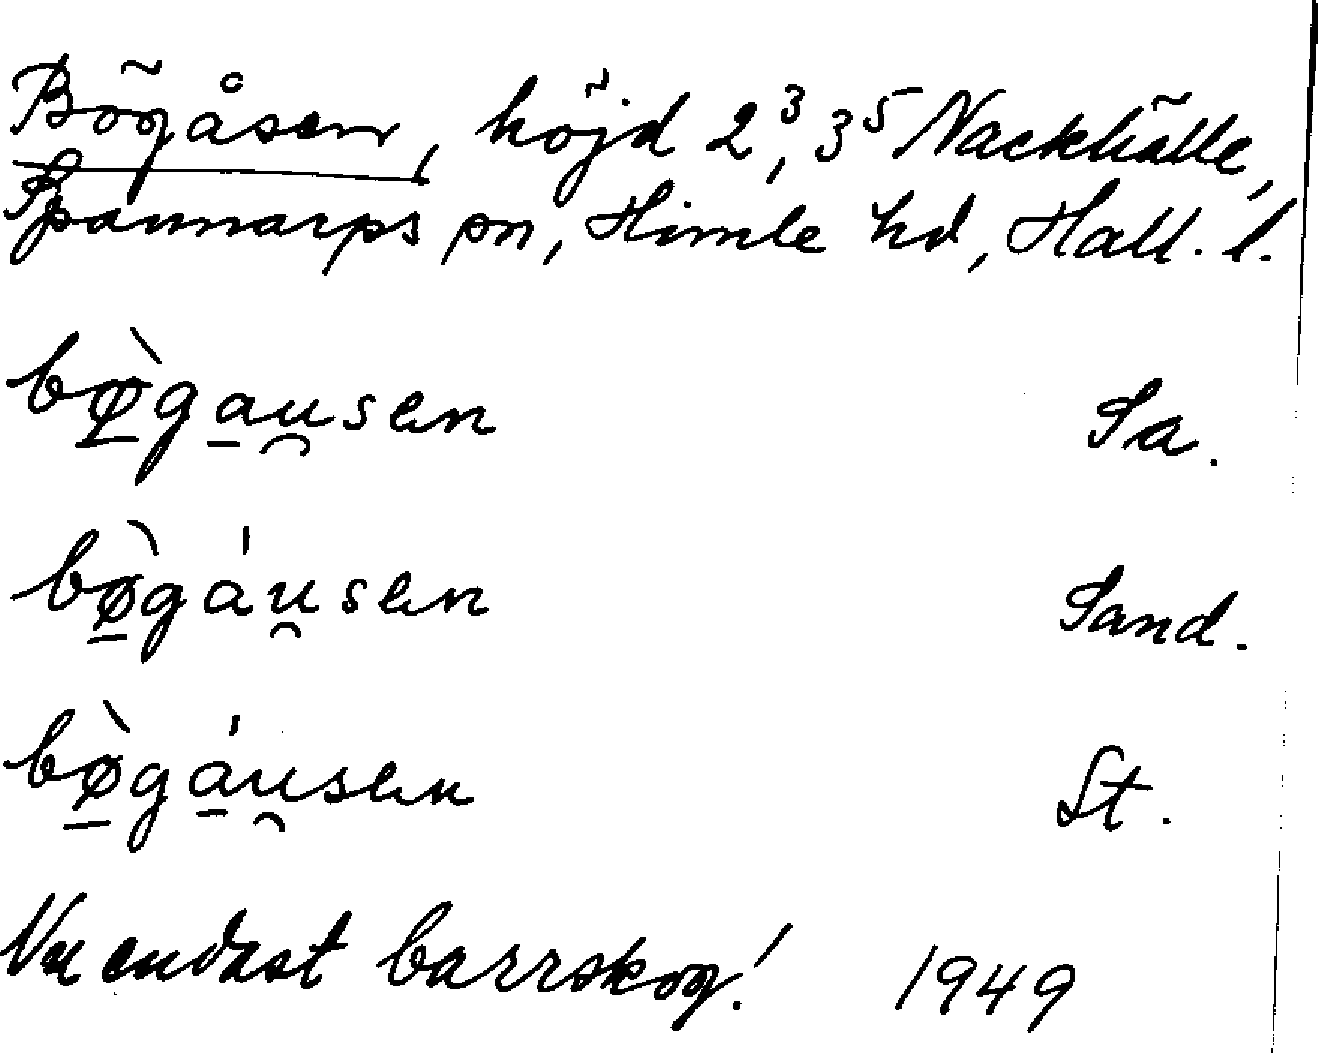 Bögåsen, höjd 2³, 3⁵ Nackhälle,
Spannarps sn, Himle hd, Hall. l.
bø̀gau̯sen Sa.
bø̀gáu̯sen Sand.
bø̀gáu̯sen St.
Nu endast barrskog! 1949